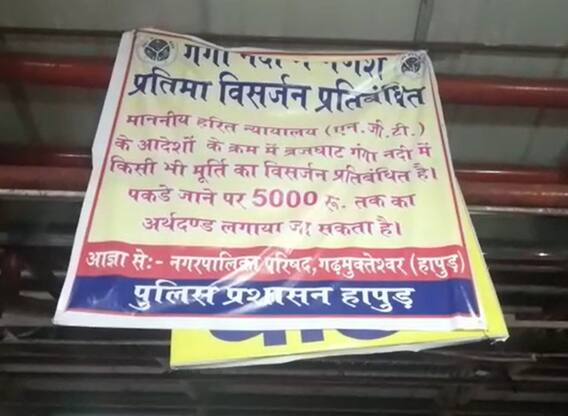 गंगा नदी में गणेश
प्रतिमा विसर्जन प्रतिबंधित
माननीय हरित न्यायालय (एन.जी.टी.)
के आदेशों के क्रम में ब्रजघाट गंगा नदी में
किसी भी मूर्ति का विसर्जन प्रतिबंधित है।
पकडे जाने पर 5000 रू. तक का
अर्थदण्ड लगाया जा सकता है।
आज्ञा से:- नगरपालिका परिषद,गढ़मुक्तेश्वर (हापुड़)
पुलिस प्रशासन हापुड़